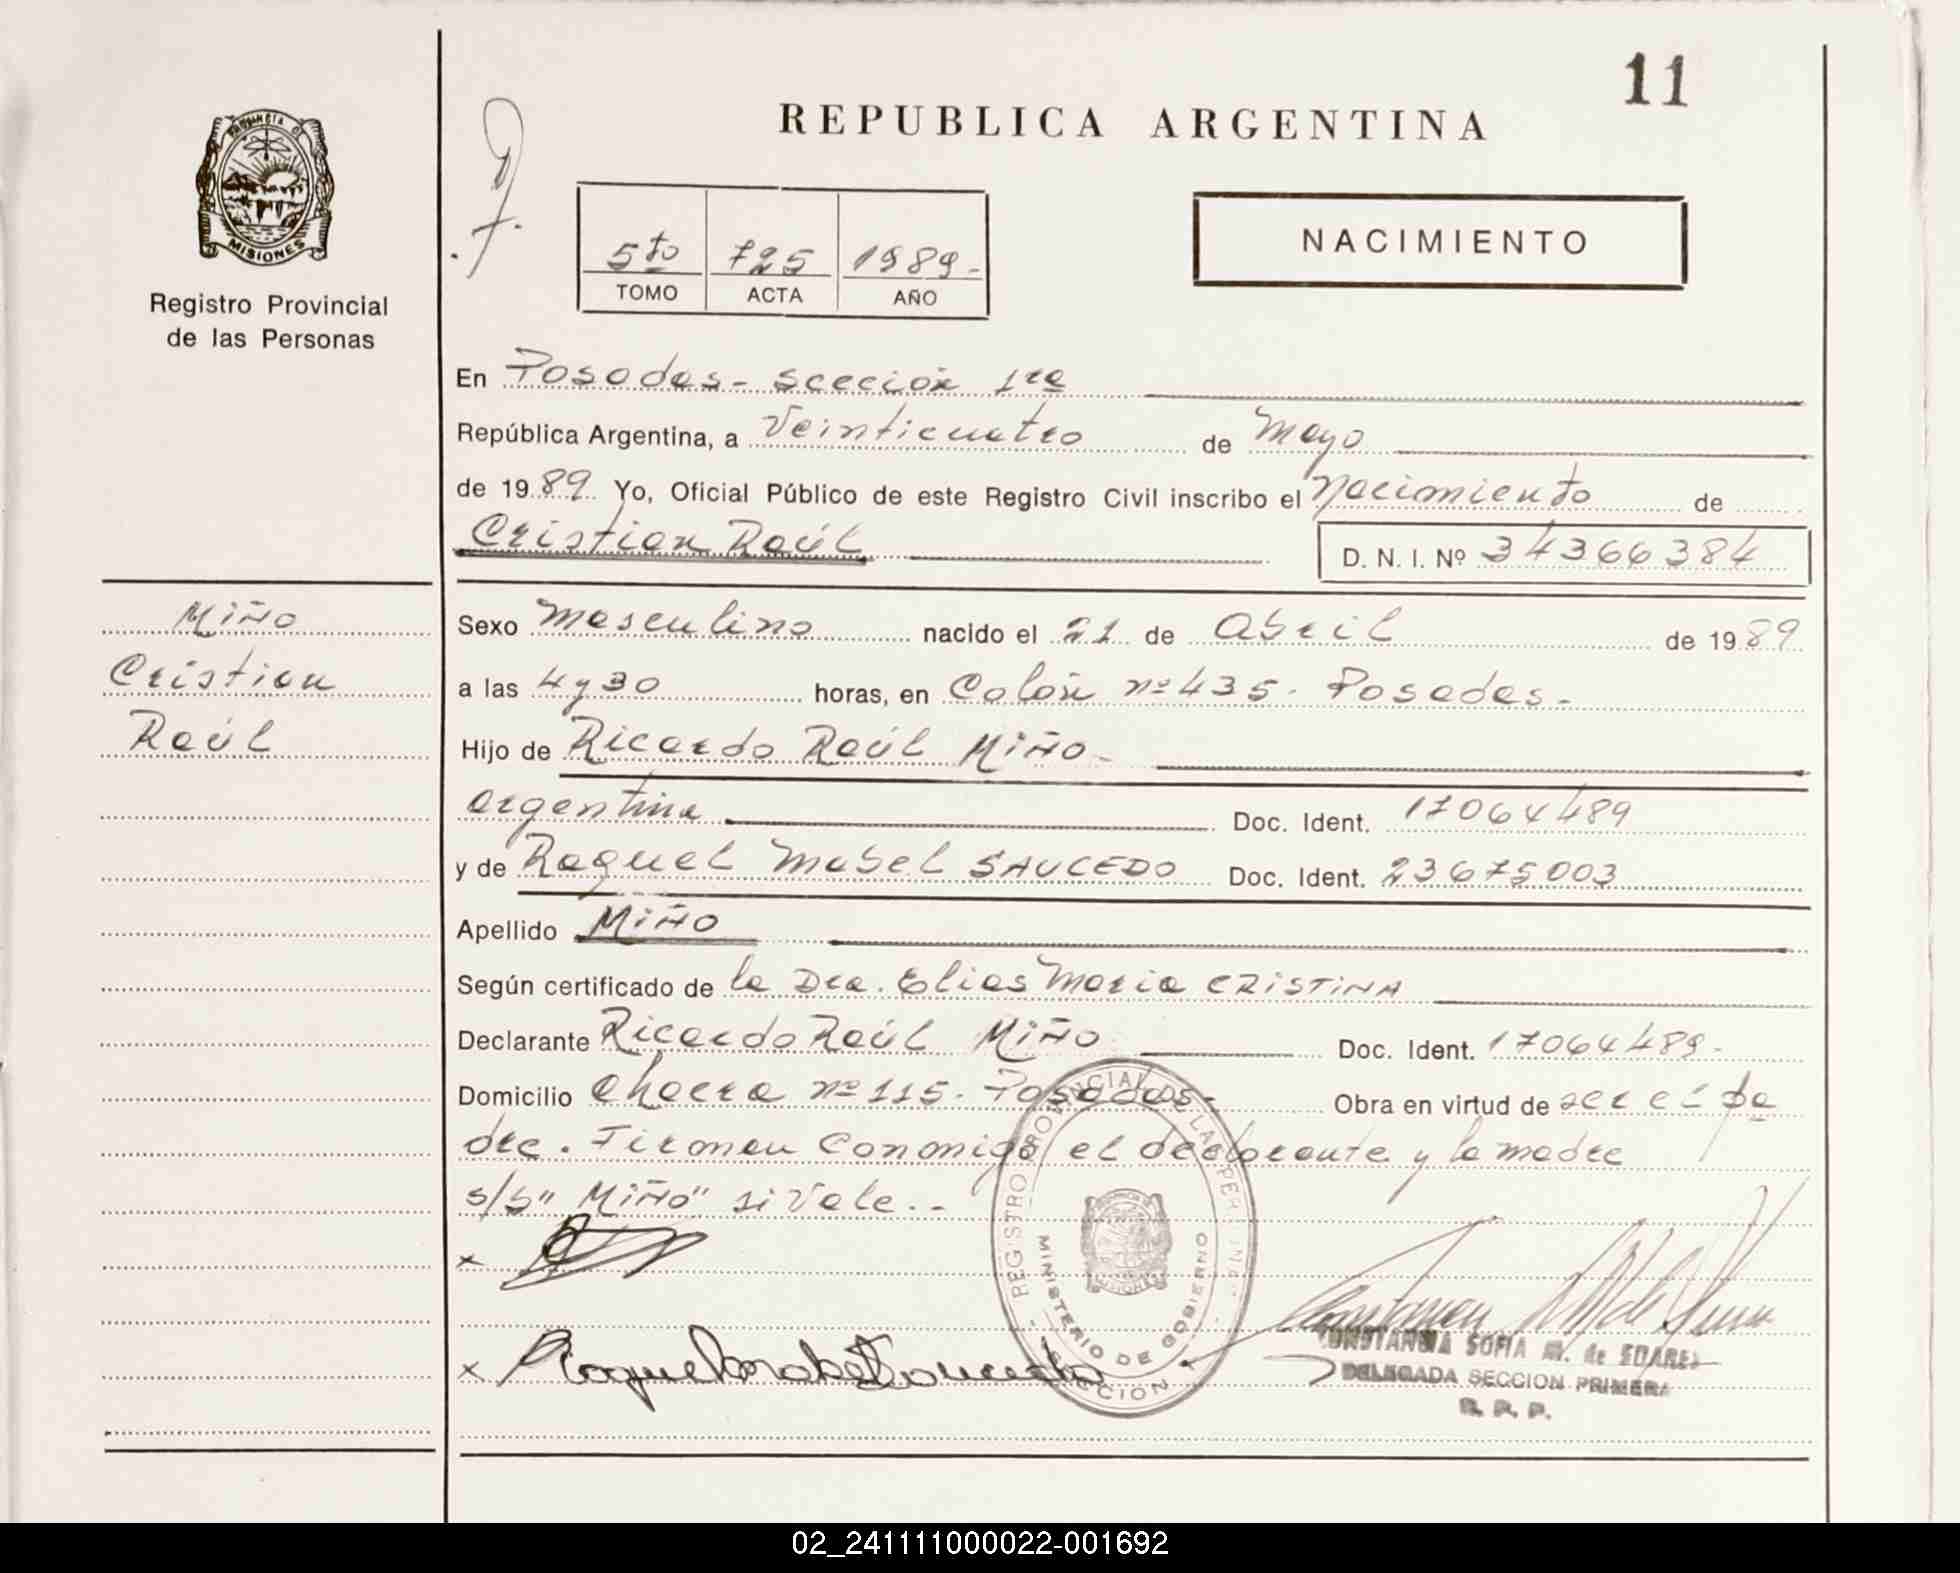 11
REPUBLICA ARGENTINA
PROVINCIA DE
MISIONES
Registro Provincial
de las Personas
NACIMIENTO
5to 725 1989-
TOMO ACTA AÑO
En Posadas - sección 1ra
República Argentina, a Veinticuatro de Mayo
de 1989 Yo, Oficial Público de este Registro Civil inscribo el Nacimiento de
Cristian Raúl D. N. I. Nº 34366384
Miño
Cristian
Raúl
Sexo Masculino nacido el 21 de Abril de 1989
a las 4 y 30 horas, en Colón nº 435. Posadas-
Hijo de Ricardo Raúl Miño-
argentina Doc. Ident. 17064489
y de Raquel Mabel SAUCEDO Doc. Ident. 23675003
Apellido Miño
Según certificado de la Dra. Elias Maria CRISTINA
Declarante Ricardo Raúl Miño Doc. Ident. 17064489-
Domicilio Chacra nº 115. Posadas- Obra en virtud de ser el pa
dre. Firman conmigo el declarante y la madre
s/b" Miño" si Vale.--
x
x Raquel Mabel Saucedo
REGISTRO PROVINCIAL DE LAS PERSONAS
MINISTERIO DE GOBIERNO
SECCION
CONSTANCIA SOFIA M. de SUAREZ
DELEGADA SECCION PRIMERA
R. P. P.
02_241111000022-001692